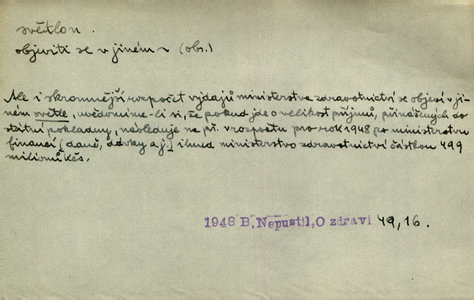 světlo n.
objeviti se v jiném ~ (obr.)
Ale i skromnější rozpočet výdajů ministerstva zdravotnictví se objeví v ji-
ném světle, uvědomíme-li si, že pokud jde o velikost příjmů, přinášených do
státní pokladny, následuje na př. v rozpočtu pro rok 1948 po ministerstvu
financí (daně, dávky a j.) ihned ministerstvo zdravotnictví částkou 499
milionů Kčs.
1948 B. Nepustil, O zdraví 49, 16.